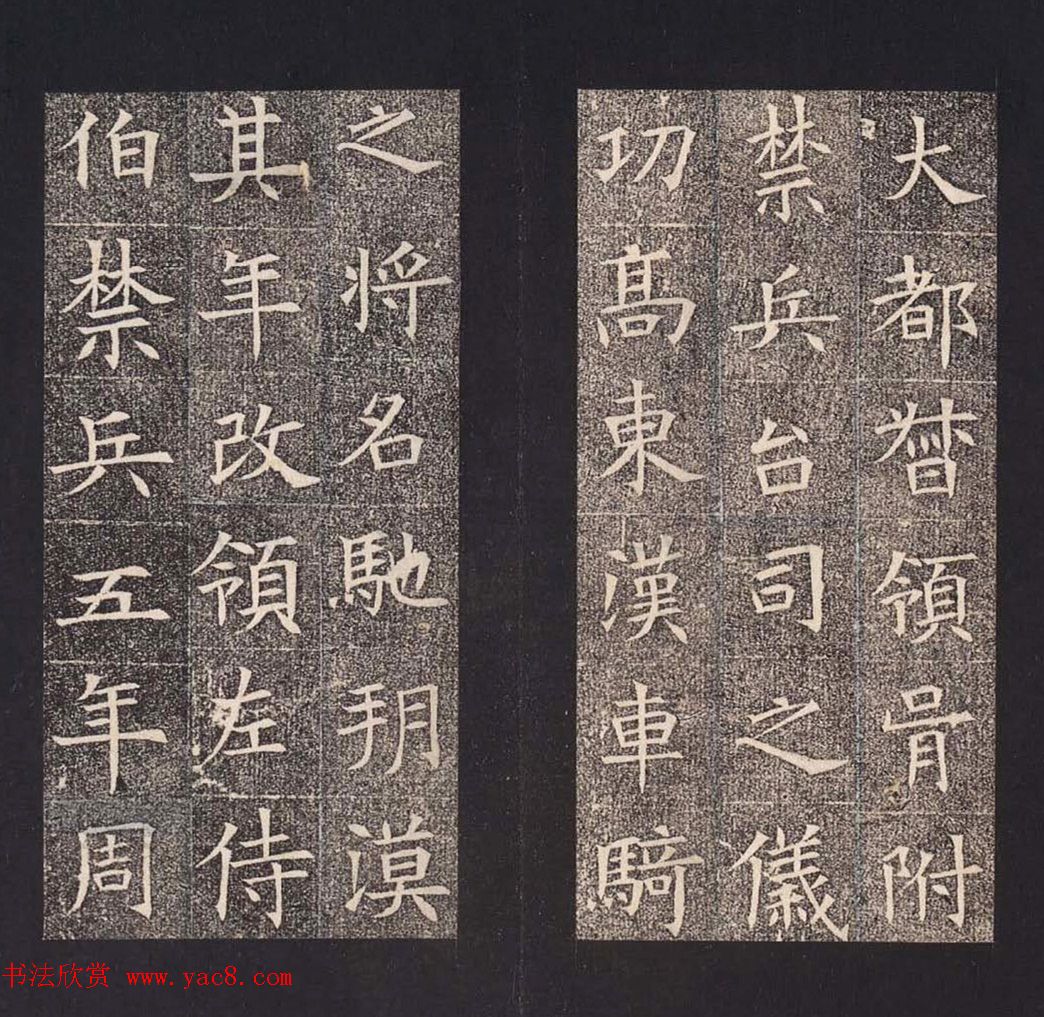 大都督領骨附
禁兵台司之儀
功高東漢車騎
之將名馳玥漠
其年改領左侍
伯禁兵五年周
书法欣赏 www.yac8.com